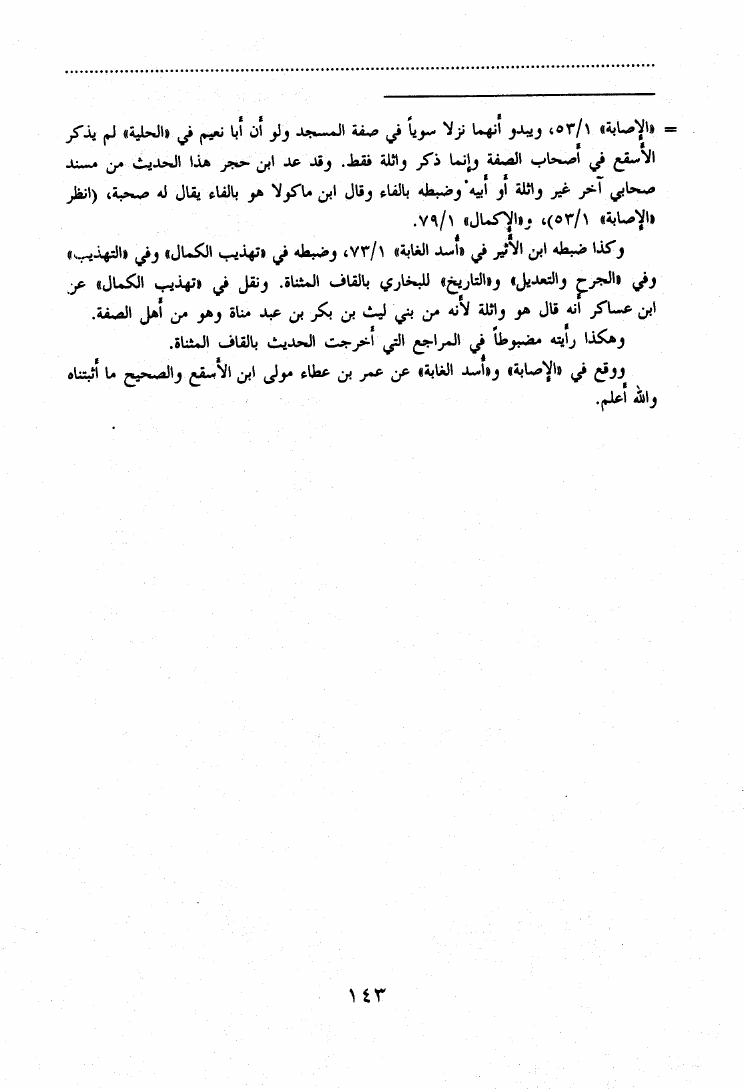 = «الإصابة» ٥٣/١، ويبدو أنهما نزلا سوياً في صفة المسجد ولو أن أبا نعيم في «الحلية» لم يذكر
الأسقع في أصحاب الصفة وإنما ذكر واثلة فقط. وقد عد ابن حجر هذا الحديث من مسند
صحابي آخر غير واثلة أو أبيه وضبطه بالفاء وقال ابن ماكولا هو بالفاء يقال له صحبة، (انظر
«الإصابة» ٥٣/١)، و«الإكمال» ٧٩/١.
وكذا ضبطه ابن الأثير في «أسد الغابة» ٧٣/١، وضبطه في «تهذيب الكمال» وفي «التهذيب»
وفي «الجرح والتعديل» و«التاريخ» للبخاري بالقاف المثناة. ونقل في «تهذيب الكمال» عن
ابن عساكر أنه قال هو واثلة لأنه من بني ليث بن بكر بن عبد مناة وهو من أهل الصفة.
وهكذا رأيته مضبوطاً في المراجع التي أخرجت الحديث بالقاف المثناة.
ووقع في «الإصابة» و«أسد الغابة» عن عمر بن عطاء مولى ابن الأسقع والصحيح ما أثبتناه
والله أعلم.
١٤٣